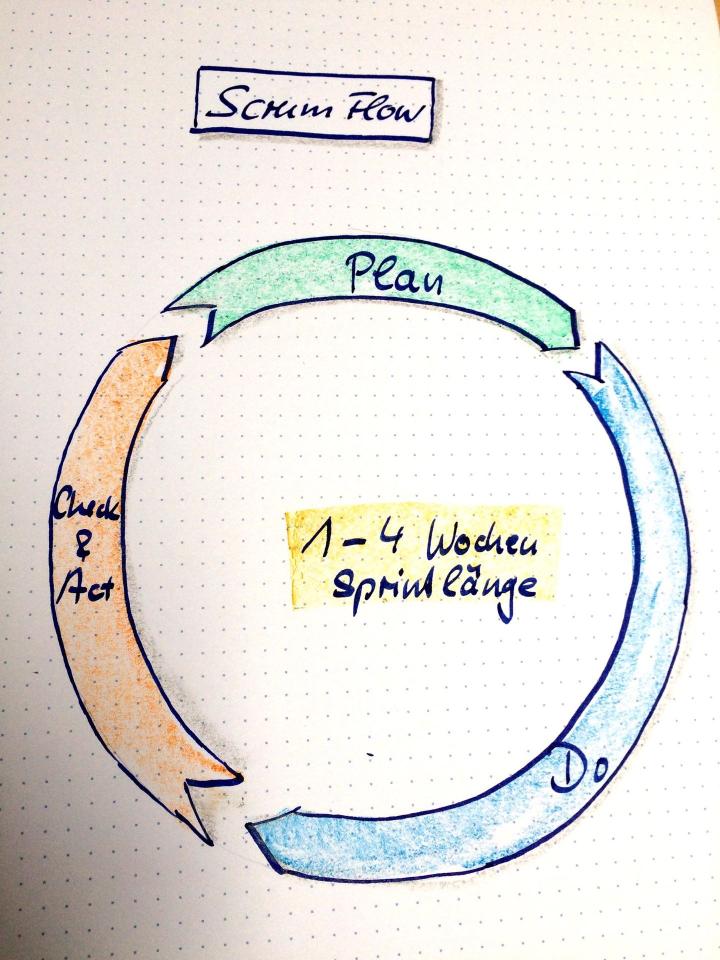 Scrum Flow
Plan
Check
&
Act
1-4 Wochen
Sprintlänge
Do